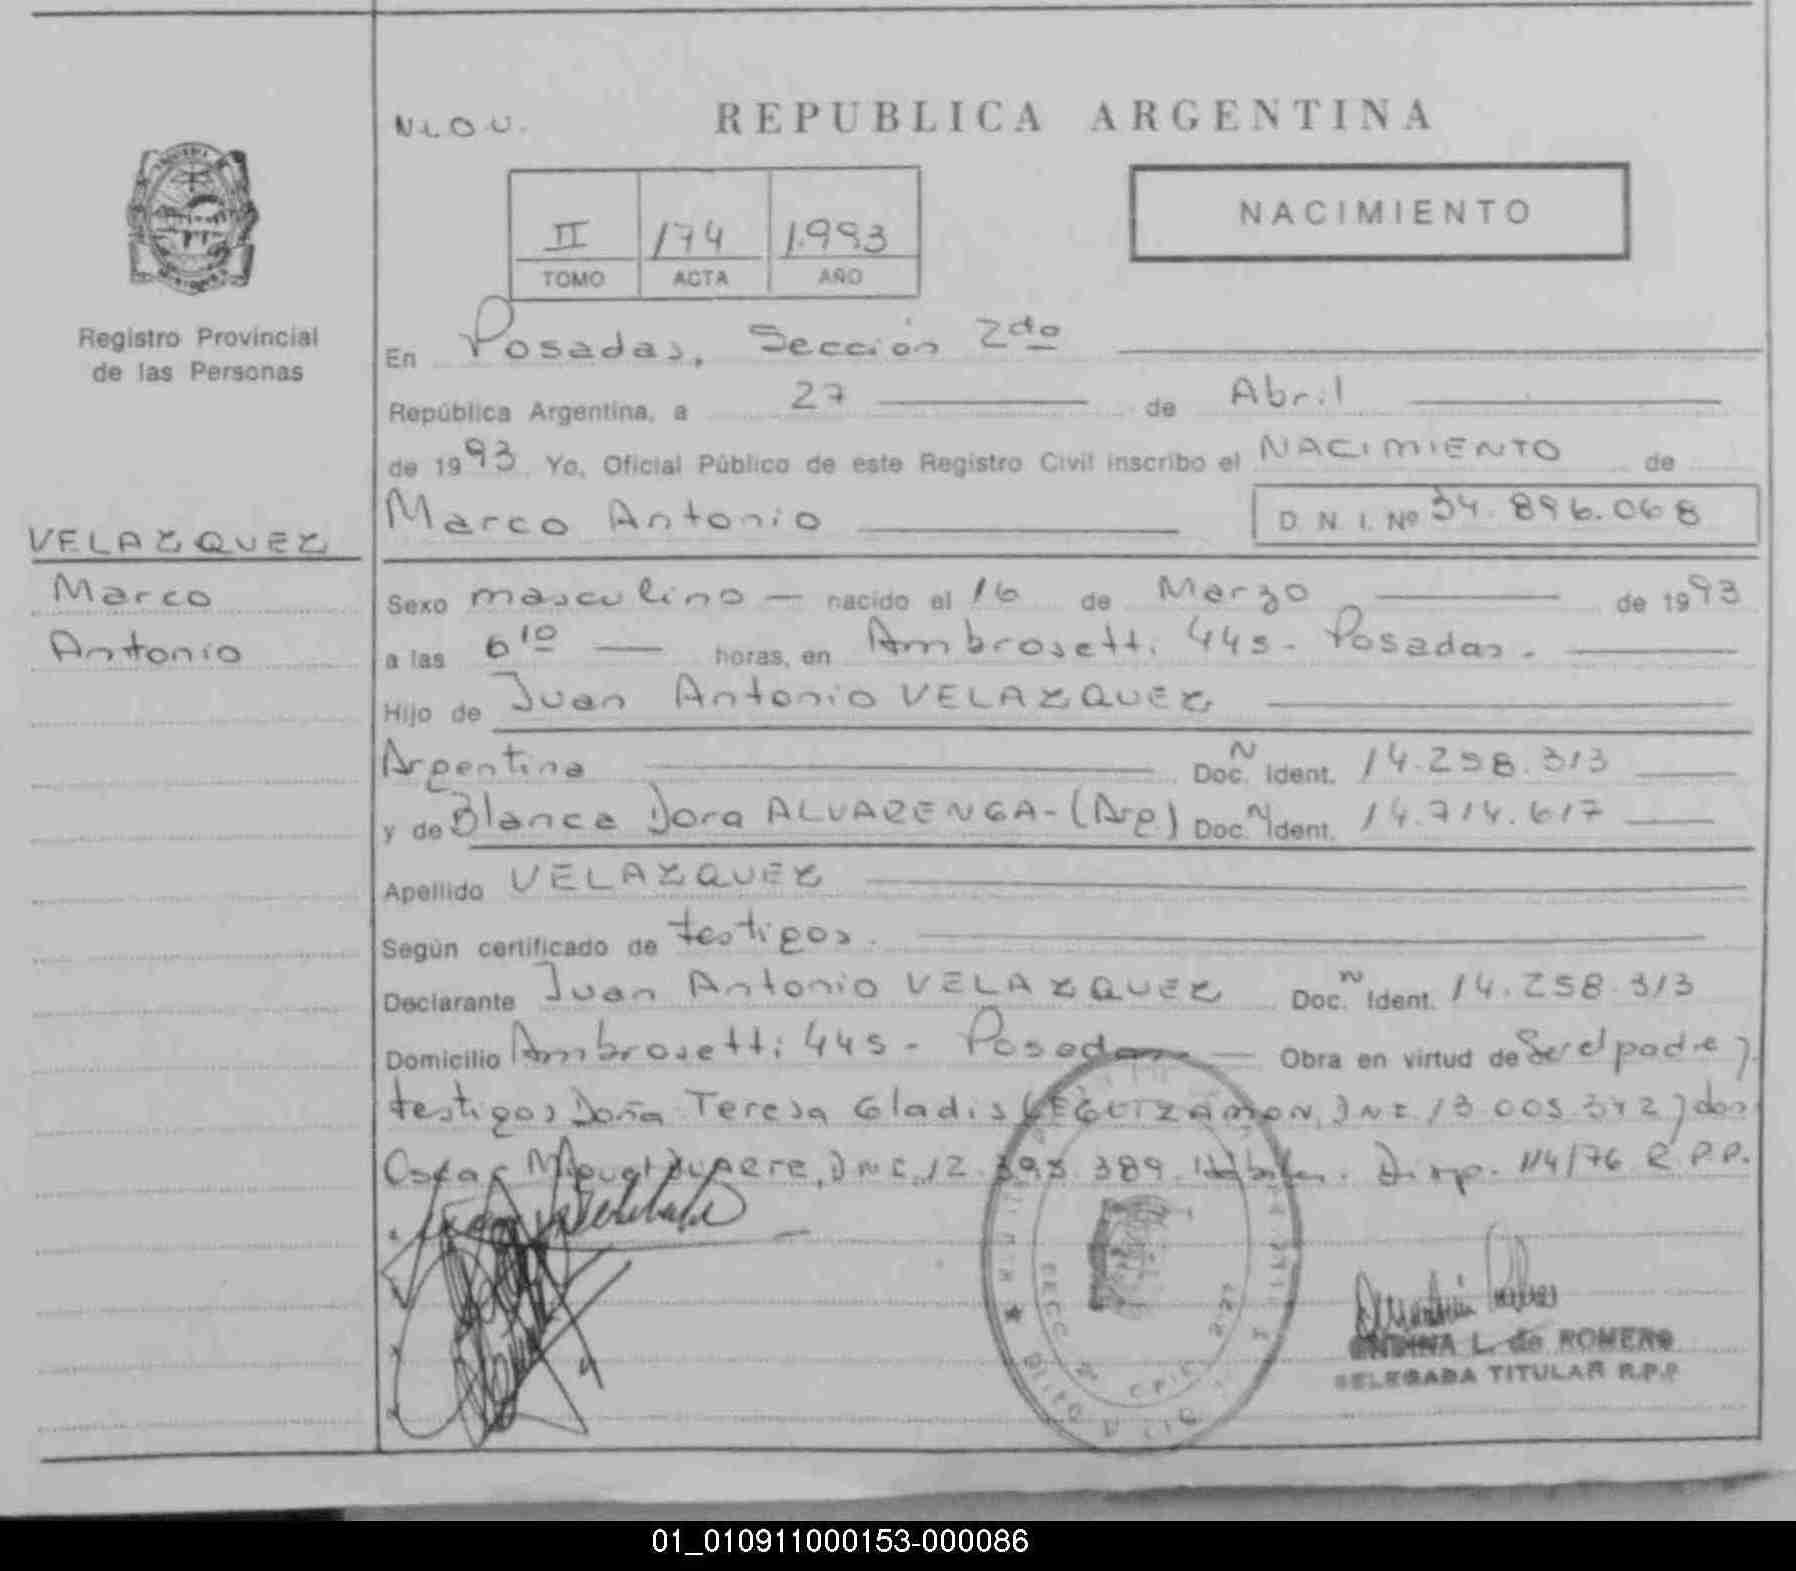 N.L.O.U.
REPUBLICA ARGENTINA
II 174 1.993
TOMO ACTA AÑO
NACIMIENTO
Registro Provincial
de las Personas
VELAZQUEZ
Marco
Antonio
En Posadas, Sección 2da
República Argentina, a 27 de Abril
de 1993 Yo, Oficial Público de este Registro Civil inscribo el NACIMIENTO de
Marco Antonio D. N. I. Nº 34.896.068
Sexo masculino nacido el 16 de Marzo de 1993
a las 6 10 horas, en Ambrosetti 445 - Posadas.
Hijo de Juan Antonio VELAZQUEZ
Argentina Doc. N Ident. 14.258.313
y de Blanca Dora ALVARENGA - (Arg) Doc. N Ident. 14.714.617
Apellido VELAZQUEZ
Según certificado de testigos.
Declarante Juan Antonio VELAZQUEZ Doc. N Ident. 14.258.313
Domicilio Ambrosetti 445 - Posadas Obra en virtud de Ser el padre y
testigos Doña Teresa Gladis LEGUIZAMON, DNI 13.005.342 y don
Oscar Miguel DNI 12.395.389 Disp. 114/76 R.P.P.
L. de ROMERO
DELEGADA TITULAR R.P.P
01_010911000153-000086